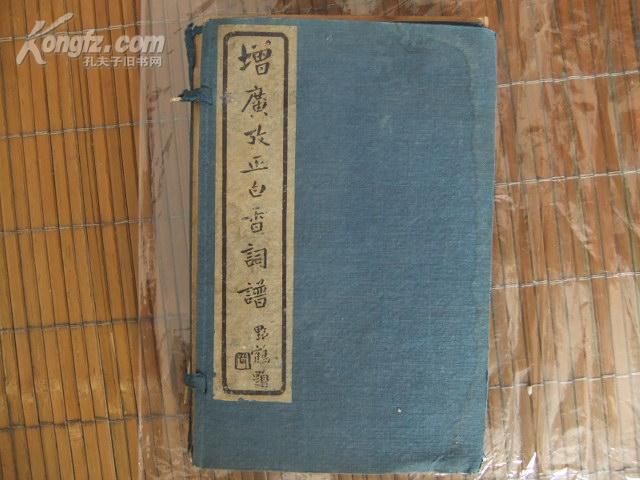 Kongfz.com
孔夫子旧书网
增廣攷正白香詞譜
野鶴題